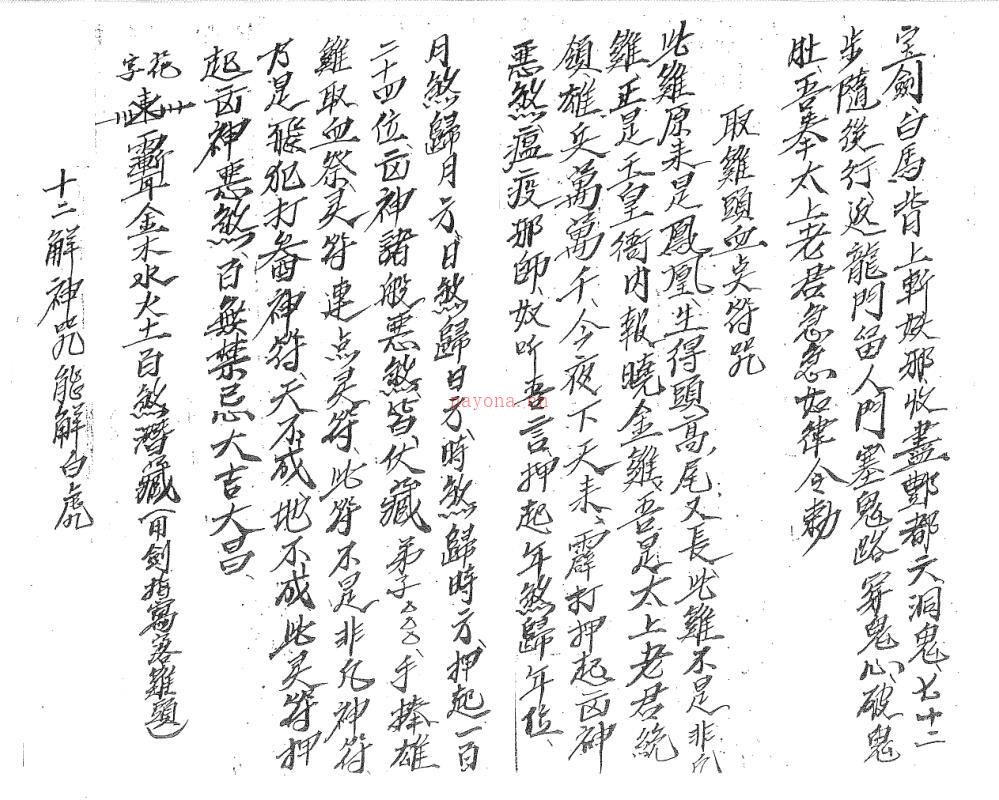 宝劍、白馬背上斬妖邪、收盡酆都六洞鬼、七十二
步隨後行、返龍門留人門塞鬼路穿鬼心破鬼
肚、吾奉太上老君急急如律令勅
取雞頭血点符咒
此雞原来是鳳凰生得頭高尾又長、此雞不是非凡
雞正是玉皇衙内報曉金雞、吾是太上老君統
領雄兵萬萬千、今夜下天来、霹打押起凶神
惡煞、瘟疫邪師、奴听吾言、押起年煞歸年位、
月煞歸月方、日煞歸日方、時煞歸時方、押起一百
二十四位、凶神諸般惡煞皆伏藏 弟子△△△、手捧雄
雞取血祭灵符連点灵符、此符不是非凡神符、
乃是 犯打 神符、天不成、地不成此灵符押
起凶神惡煞、百無禁忌大吉大昌、
花字 金木水火土百煞潛藏 用劍指寫落雞頭
十二解神咒能解白虎
nayona.cn